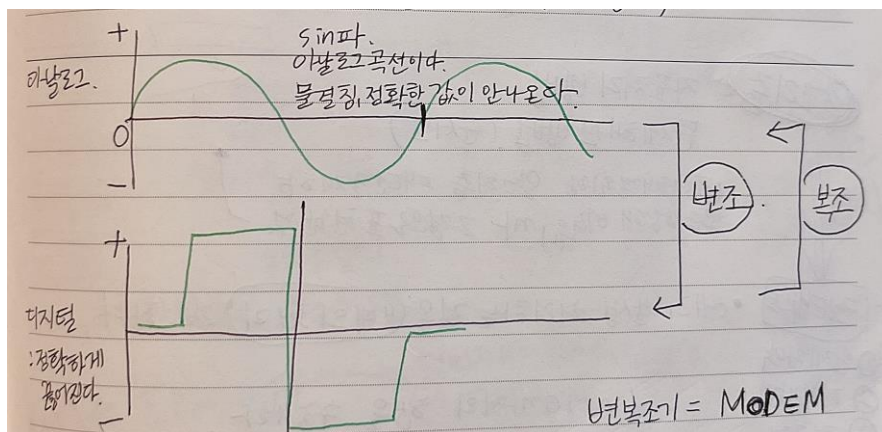 +
sin파.
아날로그곡선이다.
물결침, 정확한 값이 안나온다.
아날로그.
0
-
변조.
복조
+
디지털
:정확하게
끊어진다.
-
변복조기 = MODEM